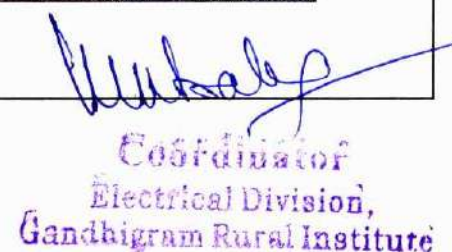 Coordinator
Electrical Division,
Gandhigram Rural Institute